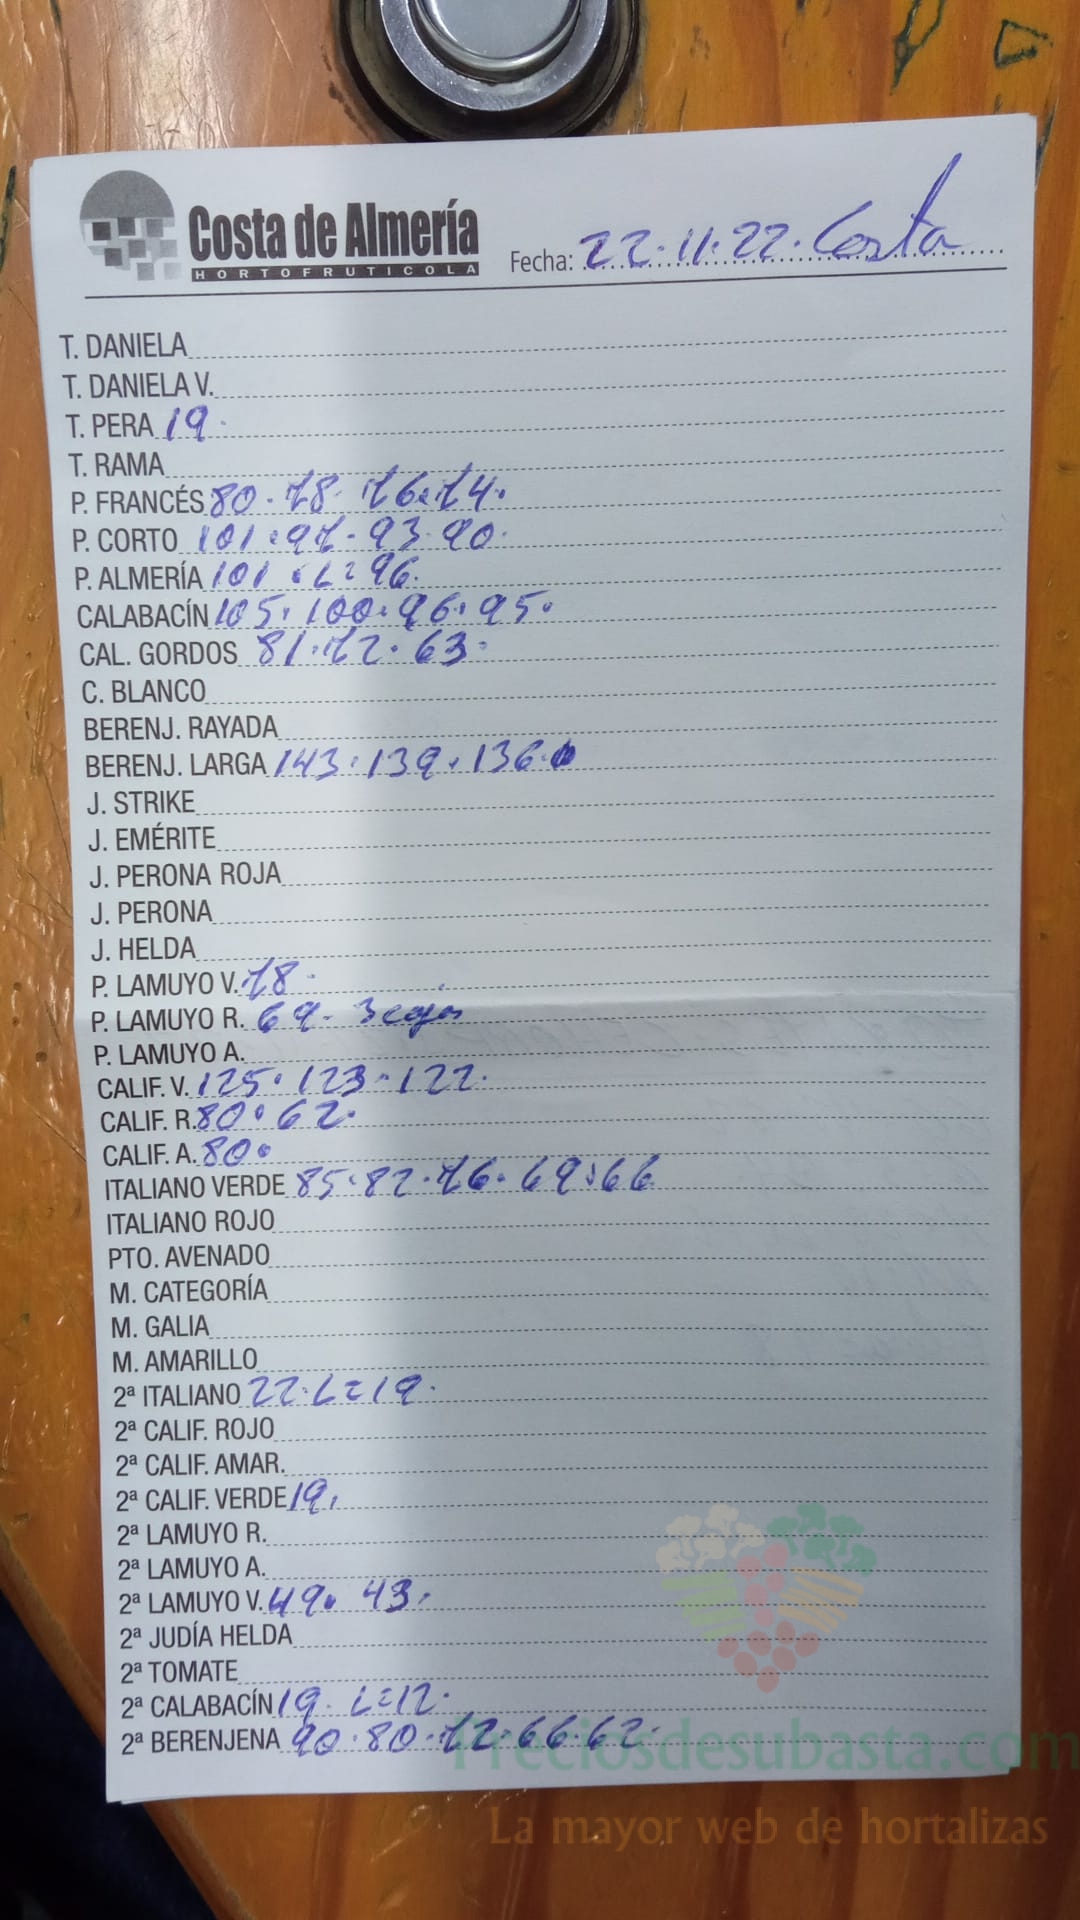 Costa de Almería
HORTOFRUTICOLA
Fecha: 22.11.22. Costa
T. DANIELA
T. DANIELA V.
T. PERA 19.
T. RAMA
P. FRANCÉS 80. 78. 76. 74.
P. CORTO 101. 97. 93. 90.
P. ALMERÍA 101. L=96.
CALABACÍN 105. 100. 96. 95.
CAL. GORDOS 81. 72. 63.
C. BLANCO
BERENJ. RAYADA
BERENJ. LARGA 143. 139. 136.
J. STRIKE
J. EMÉRITE
J. PERONA ROJA
J. PERONA
J. HELDA
P. LAMUYO V. 78.
P. LAMUYO R. 69. 3 cajas
P. LAMUYO A.
CALIF. V. 125. 123. 122.
CALIF. R. 80. 62.
CALIF. A. 80.
ITALIANO VERDE 85. 82. 76. 69. 66
ITALIANO ROJO
PTO. AVENADO
M. CATEGORÍA
M. GALIA
M. AMARILLO
2ª ITALIANO 22. L=19.
2ª CALIF. ROJO
2ª CALIF. AMAR.
2ª CALIF. VERDE 19.
2ª LAMUYO R.
2ª LAMUYO A.
2ª LAMUYO V. 49. 43.
2ª JUDÍA HELDA
2ª TOMATE
2ª CALABACÍN 19. L=12.
2ª BERENJENA 90. 80. 72. 66. 62.
Preciosdesubasta.com
La mayor web de hortalizas